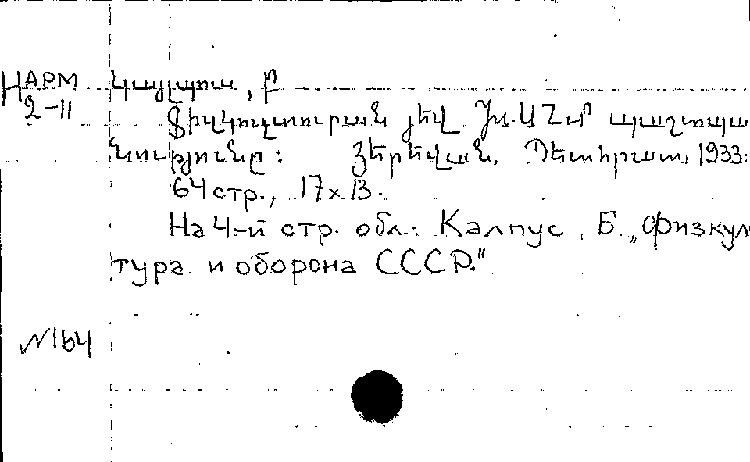 НАРМ Կալպուս, Բ
2-11 Ֆիզկուլտուրան յեվ ԽՍՀՄ պաշտպա
նությունը: Յերեվան, Պետհրատ, 1933:
64 стр., 17x13.
На 4-й стр. обл.: Калпус, Б. „Физкул
тура и оборона СССР."
N164